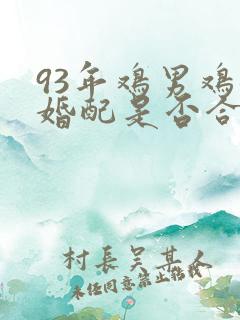 93年鸡男鸡
婚配是否合
村長吴某人
未经同意禁止转载